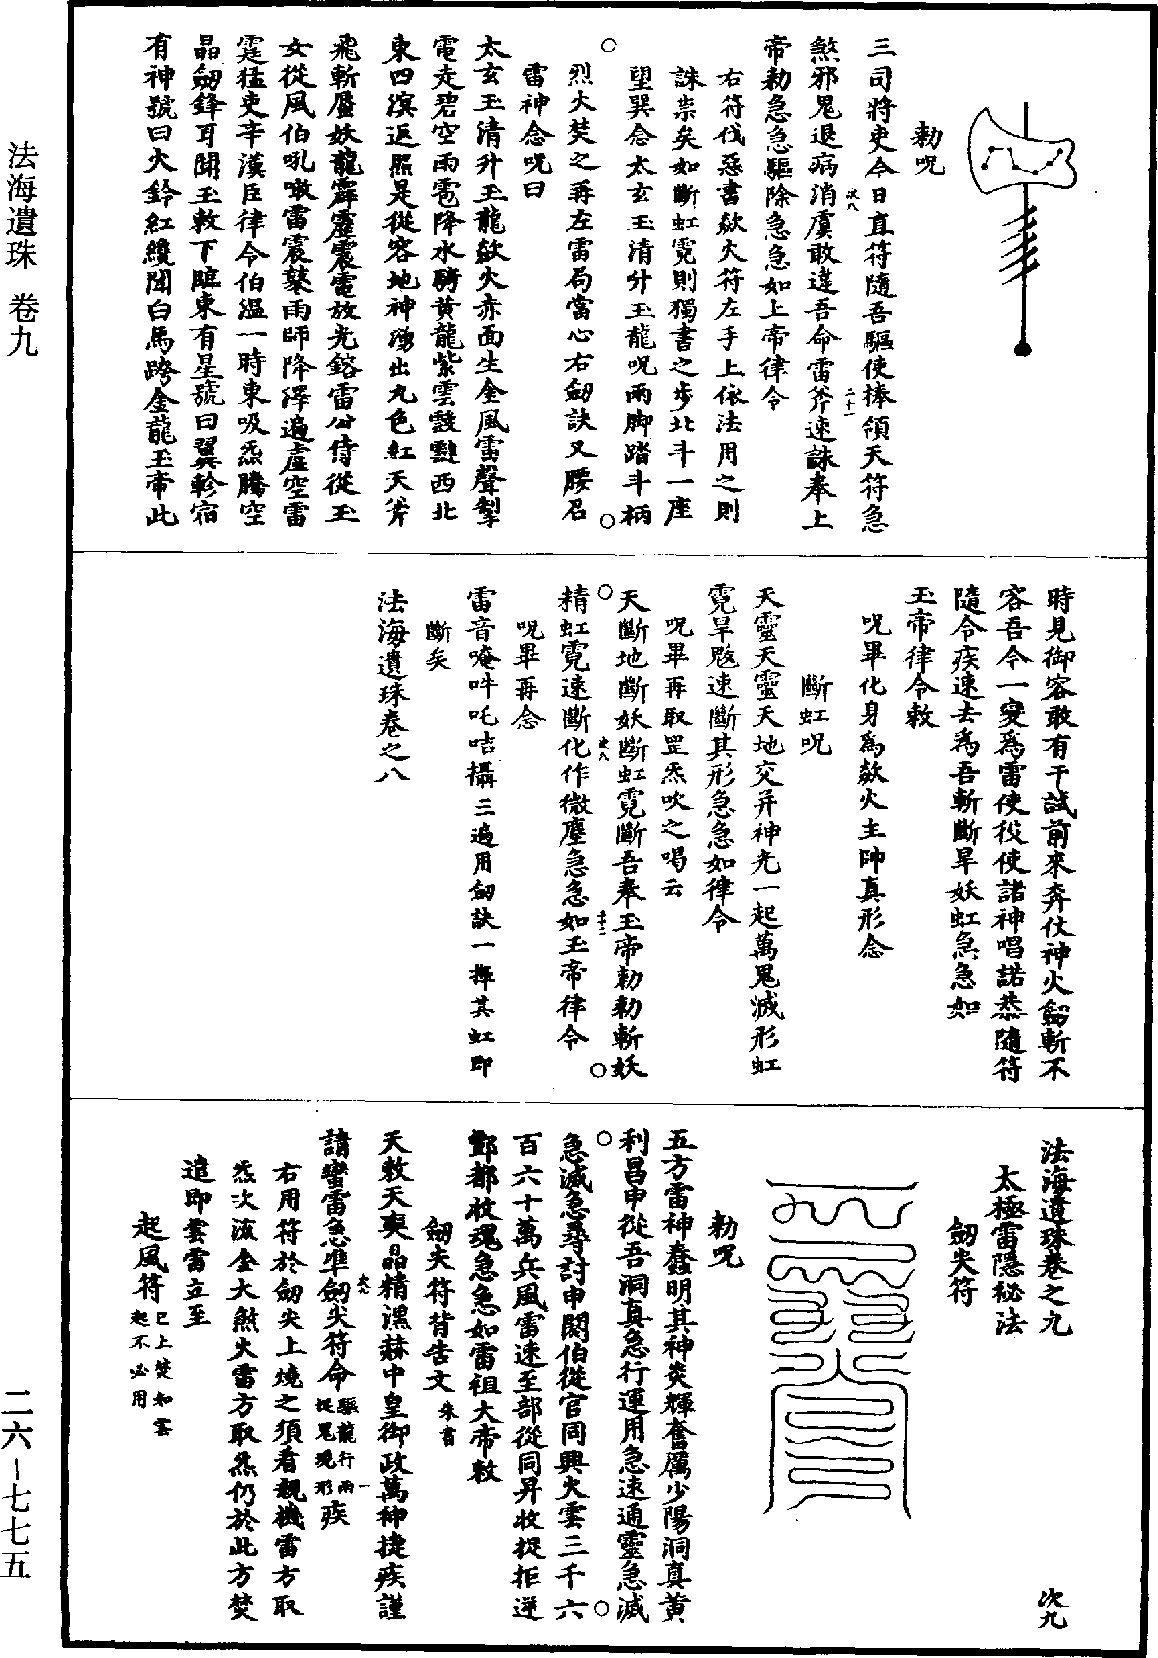 法海遺珠 卷九
二六－七七五
勑呪
三司將吏今日直符隨吾驅使捧領天符急
煞邪鬼退病消虞敢違吾命雷斧速誅奉上
帝勑急急驅除急急如上帝律令
右符伐惡書歘火符左手上依法用之則
誅祟矣如斷虹霓則獨書之步北斗一座
望巽念太玄玉清升玉龍呪兩脚踏斗柄
烈火焚之再左雷局當心右劒訣叉腰召
雷神念呪曰
太玄玉清升玉龍歘火赤面生金風雷聲掣
電走碧空雨雹降水騎黄龍紫雲靉靆西北
東四溟返照是從容地神湧出九色紅天斧
飛斬靨妖龍霹靂震電放光鎔雷公侍從玉
女從風伯吼噉雷震皷雨師降澤遍虚空雷
霆猛吏辛漢臣律令伯溫一時東吸炁騰空
晶劒鋒耳聞玉敕下臨東有星號曰翼軫宿
有神號曰火鈴紅纓聞白馬跨金龍玉帝此
時見御容敢有干試前來奔伏神火劒斬不
容吾今一變爲雷使役使諸神唱諾恭隨符
隨令疾速去爲吾斬斷旱妖虹急急如
玉帝律令敕
呪畢化身爲歘火主帥真形念
斷虹呪
天靈天靈天地交并神光一起萬鬼滅形虹
霓旱魃速斷其形急急如律令
呪畢再取罡炁吹之喝云
天斷地斷妖斷虹霓斷吾奉玉帝勑勑斬妖
精虹霓速斷化作微塵急急如玉帝律令
呪畢再念
雷音唵吽吒咭攝三遍用劒訣一揮其虹即
斷矣
法海遺珠卷之八
法海遺珠卷之九
次九
太極雷隱秘法
劒尖符
勑呪
五方雷神蠢明其神炎輝奮厲少陽洞真黄
利昌申從吾洞真急行運用急速通靈急滅
急滅急尋討申閼伯從官同興火雲三千六
百六十萬兵風雷速至部從同昇收捉拒逆
酆都收魂急急如雷祖大帝敕
劒尖符背告文 朱書
天敕天奭晶精濕赫中皇御政萬神捷疾謹
請蠻雷急準劒尖符命 驅龍行雨 捉鬼現形 疾
右用符於劒尖上燒之須看覩機雷方取
炁次流金大煞火雷方取炁仍於此方焚
遣即雲雷立至
起風符 已上焚和雲 起不必用